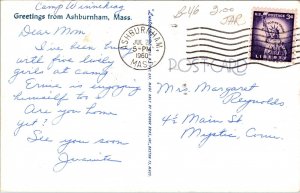 Camp Winneking
Greetings from Ashburnham, Mass.
Dear Mom
I've been busy
with five lively
girls at camp.
Ernie is enjoying
himself too
Are you home
yet?
See you soon
Juanita
ASHBURNHAM,
5-PM
1960
MASS.
B-46 3.00
JAR
3¢
LIBERTY
POST CARD
Mrs Margaret
Reynolds
4½ Main St
Mystic, Conn.